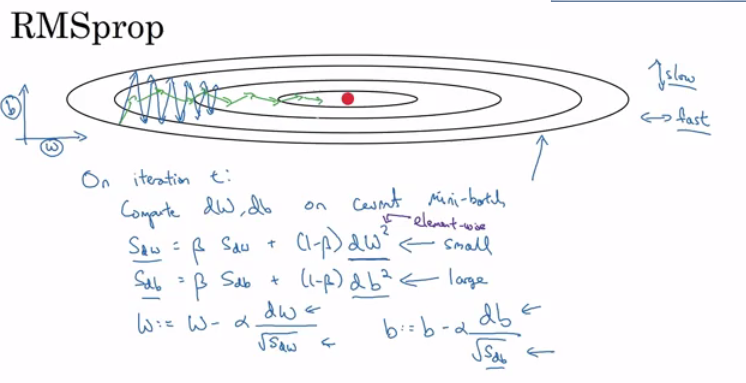 RMSprop
b
w
↕ slow
↔ fast
On iteration t:
Compute dW, db on current mini-batch
element-wise
S_dw = β S_dw + (1-β) dW² ← small
S_db = β S_db + (1-β) db² ← large
W := W - α dW/√S_dw ← b := b - α db/√S_db ←